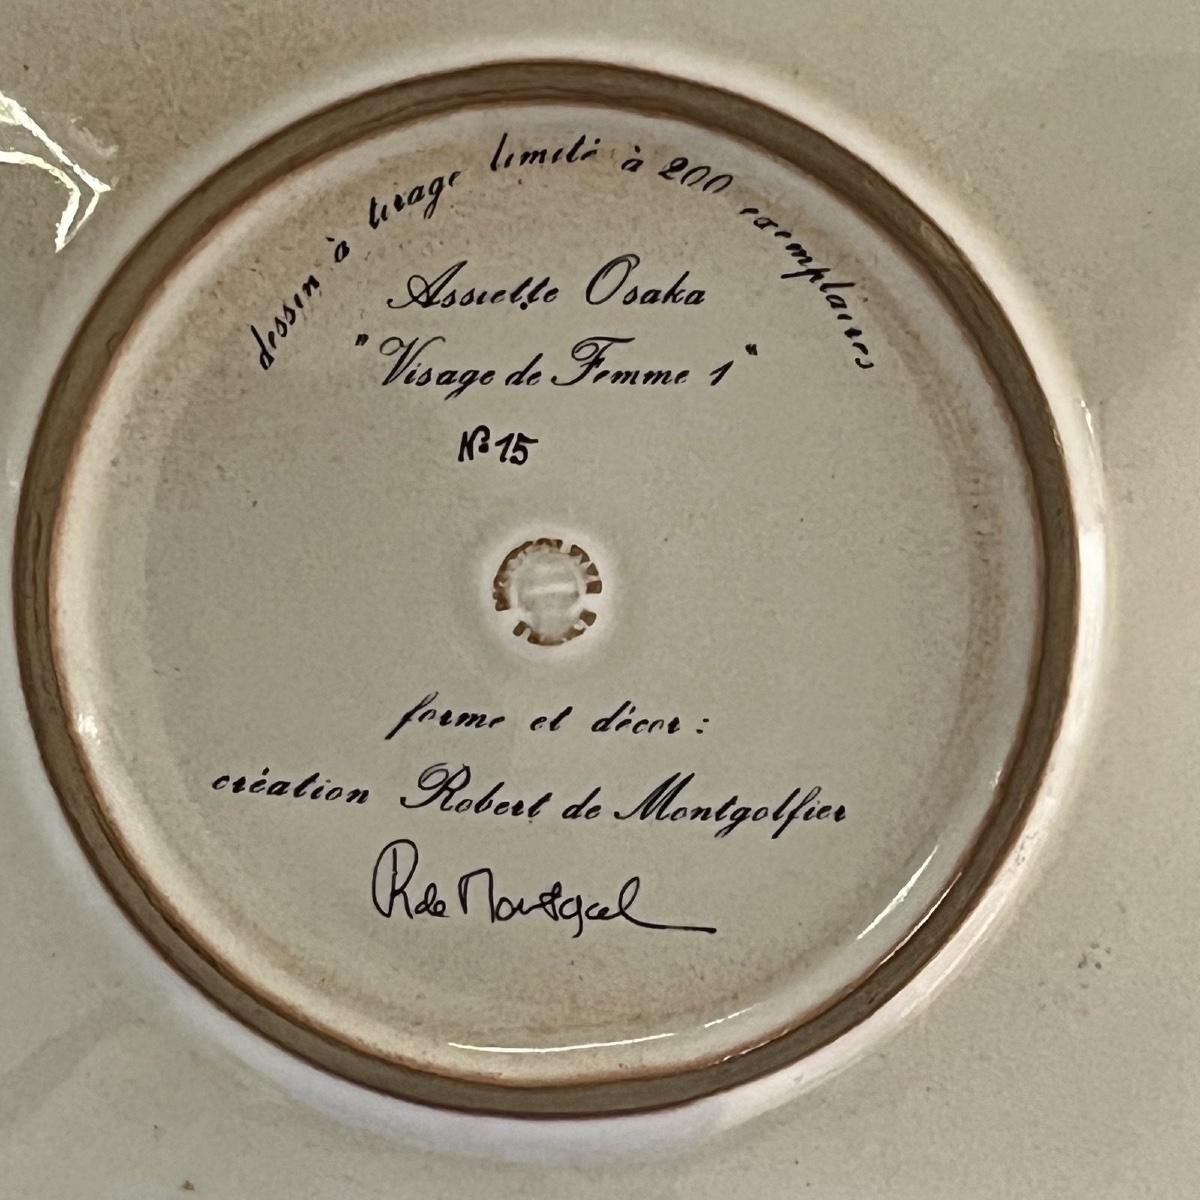 dessin à tirage limité à 200 exemplaires
Assiette Osaka
"Visage de Femme 1"
Nº 15
forme et décor :
création Robert de Montgolfier
R de Montgol